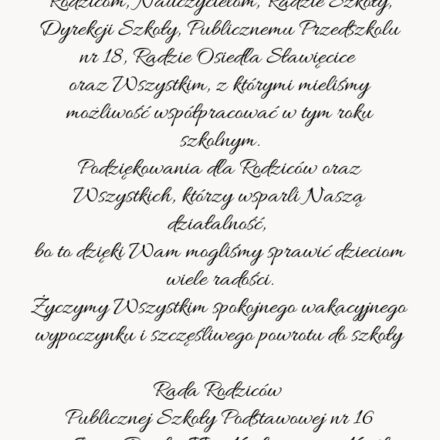 Rodzicom, Nauczycielom, Radzie Szkoły,
Dyrekcji Szkoły, Publicznemu Przedszkolu
nr 18, Radzie Osiedla Sławięcice
oraz Wszystkim, z którymi mieliśmy
możliwość współpracować w tym roku
szkolnym.
Podziękowania dla Rodziców oraz
Wszystkich, którzy wsparli Naszą
działalność,
bo to dzięki Wam mogliśmy sprawić dzieciom
wiele radości.
Życzymy Wszystkim spokojnego wakacyjnego
wypoczynku i szczęśliwego powrotu do szkoły
Rada Rodziców
Publicznej Szkoły Podstawowej nr 16